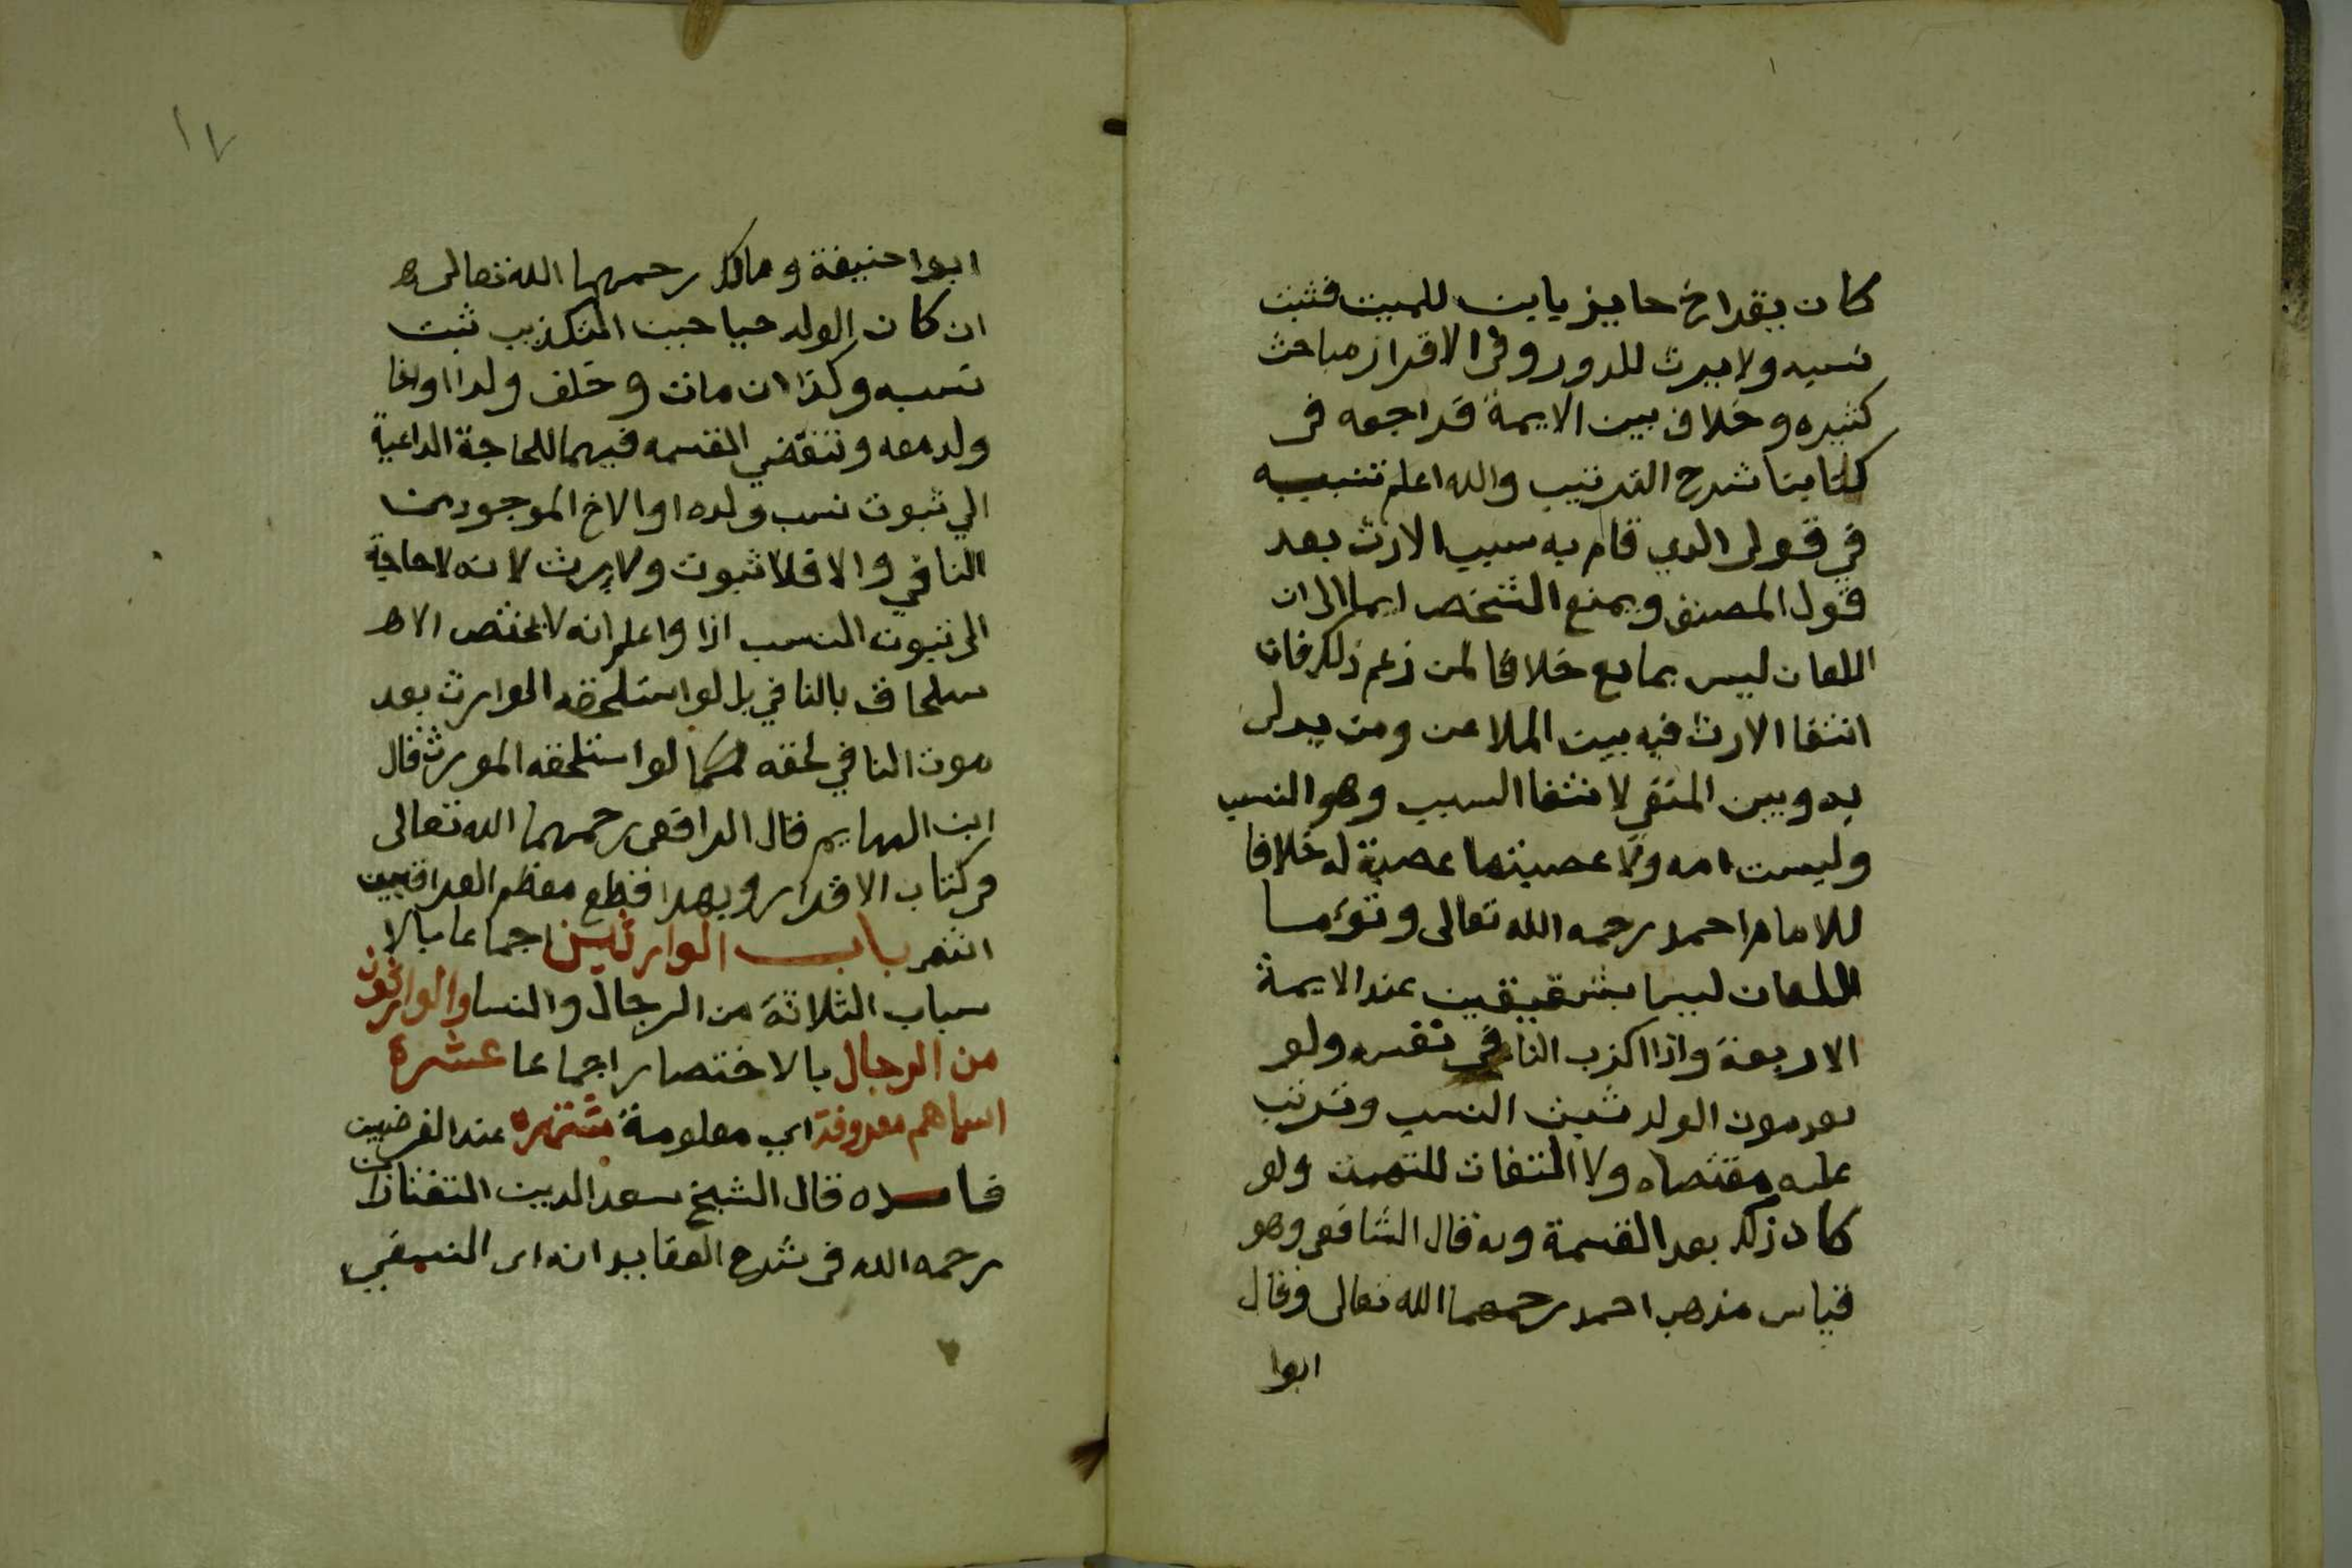 كان يقر اخ حايز بابن للميت فثبت
نسبه ولا يرث للدور وفي الاقرار مباحث
كثيره وخلاف بين الايمة فراجعه في
كتابنا شرح الترتيب والله اعلم تنبيه
في قولي الذي قام به سبب الارث بعد
قول المصنف ويمنع الشخص ايما الى ان
اللعان ليس بمانع خلافا لمن زعم ذلك فان
انتفا الارث فيه بين الملاعن ومن يدلى
به وبين المنفي لانتفا السبب وهو النسب
وليست امه ولا عصبتها عصبة له خلافا
للامام احمد رحمه الله تعالى وتوءما
اللعان ليسا بشقيقين عند الايمة
الاربعة واذا اكذب النافي نفسه ولو
بعد موت الولد ثبت النسب وترتب
عليه مقتضاه ولا التفات للتهمت ولو
كان ذلك بعد القسمة وبه قال الشافعي وهو
قياس مذهب احمد رحمهما الله تعالى وقال
ابوا
١٧
ابوا حنيفة ومالك رحمهما الله تعالى
ان كان الولد حيا حين التكذيب ثبت
نسبه وكذا ان مات وخلف ولدا او اخا
ولد معه وتنقضي القسمه فيهما للحاجة الداعية
الي ثبوت نسب ولده او الاخ الموجود من
النافي والا فلا ثبوت ولا يرث لانه لا حاجة
الى ثبوت النسب اذا واعلم انه لا يختص الا
ستلحاق بالنافي بل لو استلحقه الوارث بعد
موت النافي لحقه كما لو استلحقه المورث قال
ابن الهايم قال الرافعي رحمهما الله تعالى
في كتاب الاقرار وبهذا قطع معظم العراقيين
انتهى باب الوارثين اجماعا بالا
سباب الثلاثة من الرجال والنسا والوارثون
من الرجال بالاختصار اجماعا عشرة
اسماهم معروفة اي معلومة مشتهره عند الفرضيين
قال الشيخ سعد الدين التفتازاني
رحمه الله في شرح العقايد انه اى النسفي